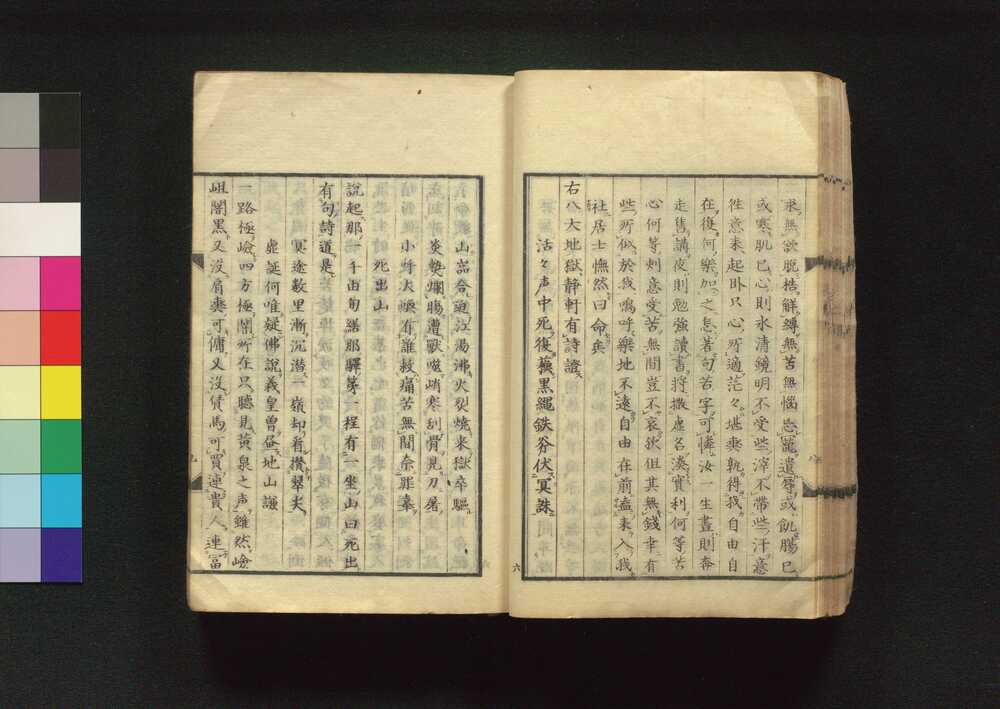 来無欲脱桔解縛無苦無惱忘寵遺辱或飢腸已
或寒肌已心則氷清鏡明不受些滓不帯些汗意
徃意来起卧只心所適茫々堪輿執得我自由自
在復何樂加之息著句苦字可憐汝一生晝則奔
走售講夜則勉強讀書将撒虚名湊實利何等苦
心何等刺意受苦無間豈不哀欤但其無錢幸有
些所似於我嗚呼樂地不遠自由在前盍来入我
社居士憮然曰命矣
右八大地獄静軒有詩證
活々声中死復蘓黒繩鉄券伏冥誅
山嵓合迫江湯沸火烈燒来獄卒驅
炎𤍠爛膓遭獸噬峭寒刮骨見刀屠
小呼大喚有誰救痛苦無間奈罪辜
死出山
說起那一千由旬繇那驛第一程有一坐山曰死出
有句詩道是
冥途数里漸沉潜一嶺却看攅翠夫
虚誕何唯疑佛說義皇曾昼地山謙
一路極嶮四方極闇所在只聴見黄泉之声雖然嶮
岨闇黒又没肩輿可傭又没賃馬可買連貴人連冨
六